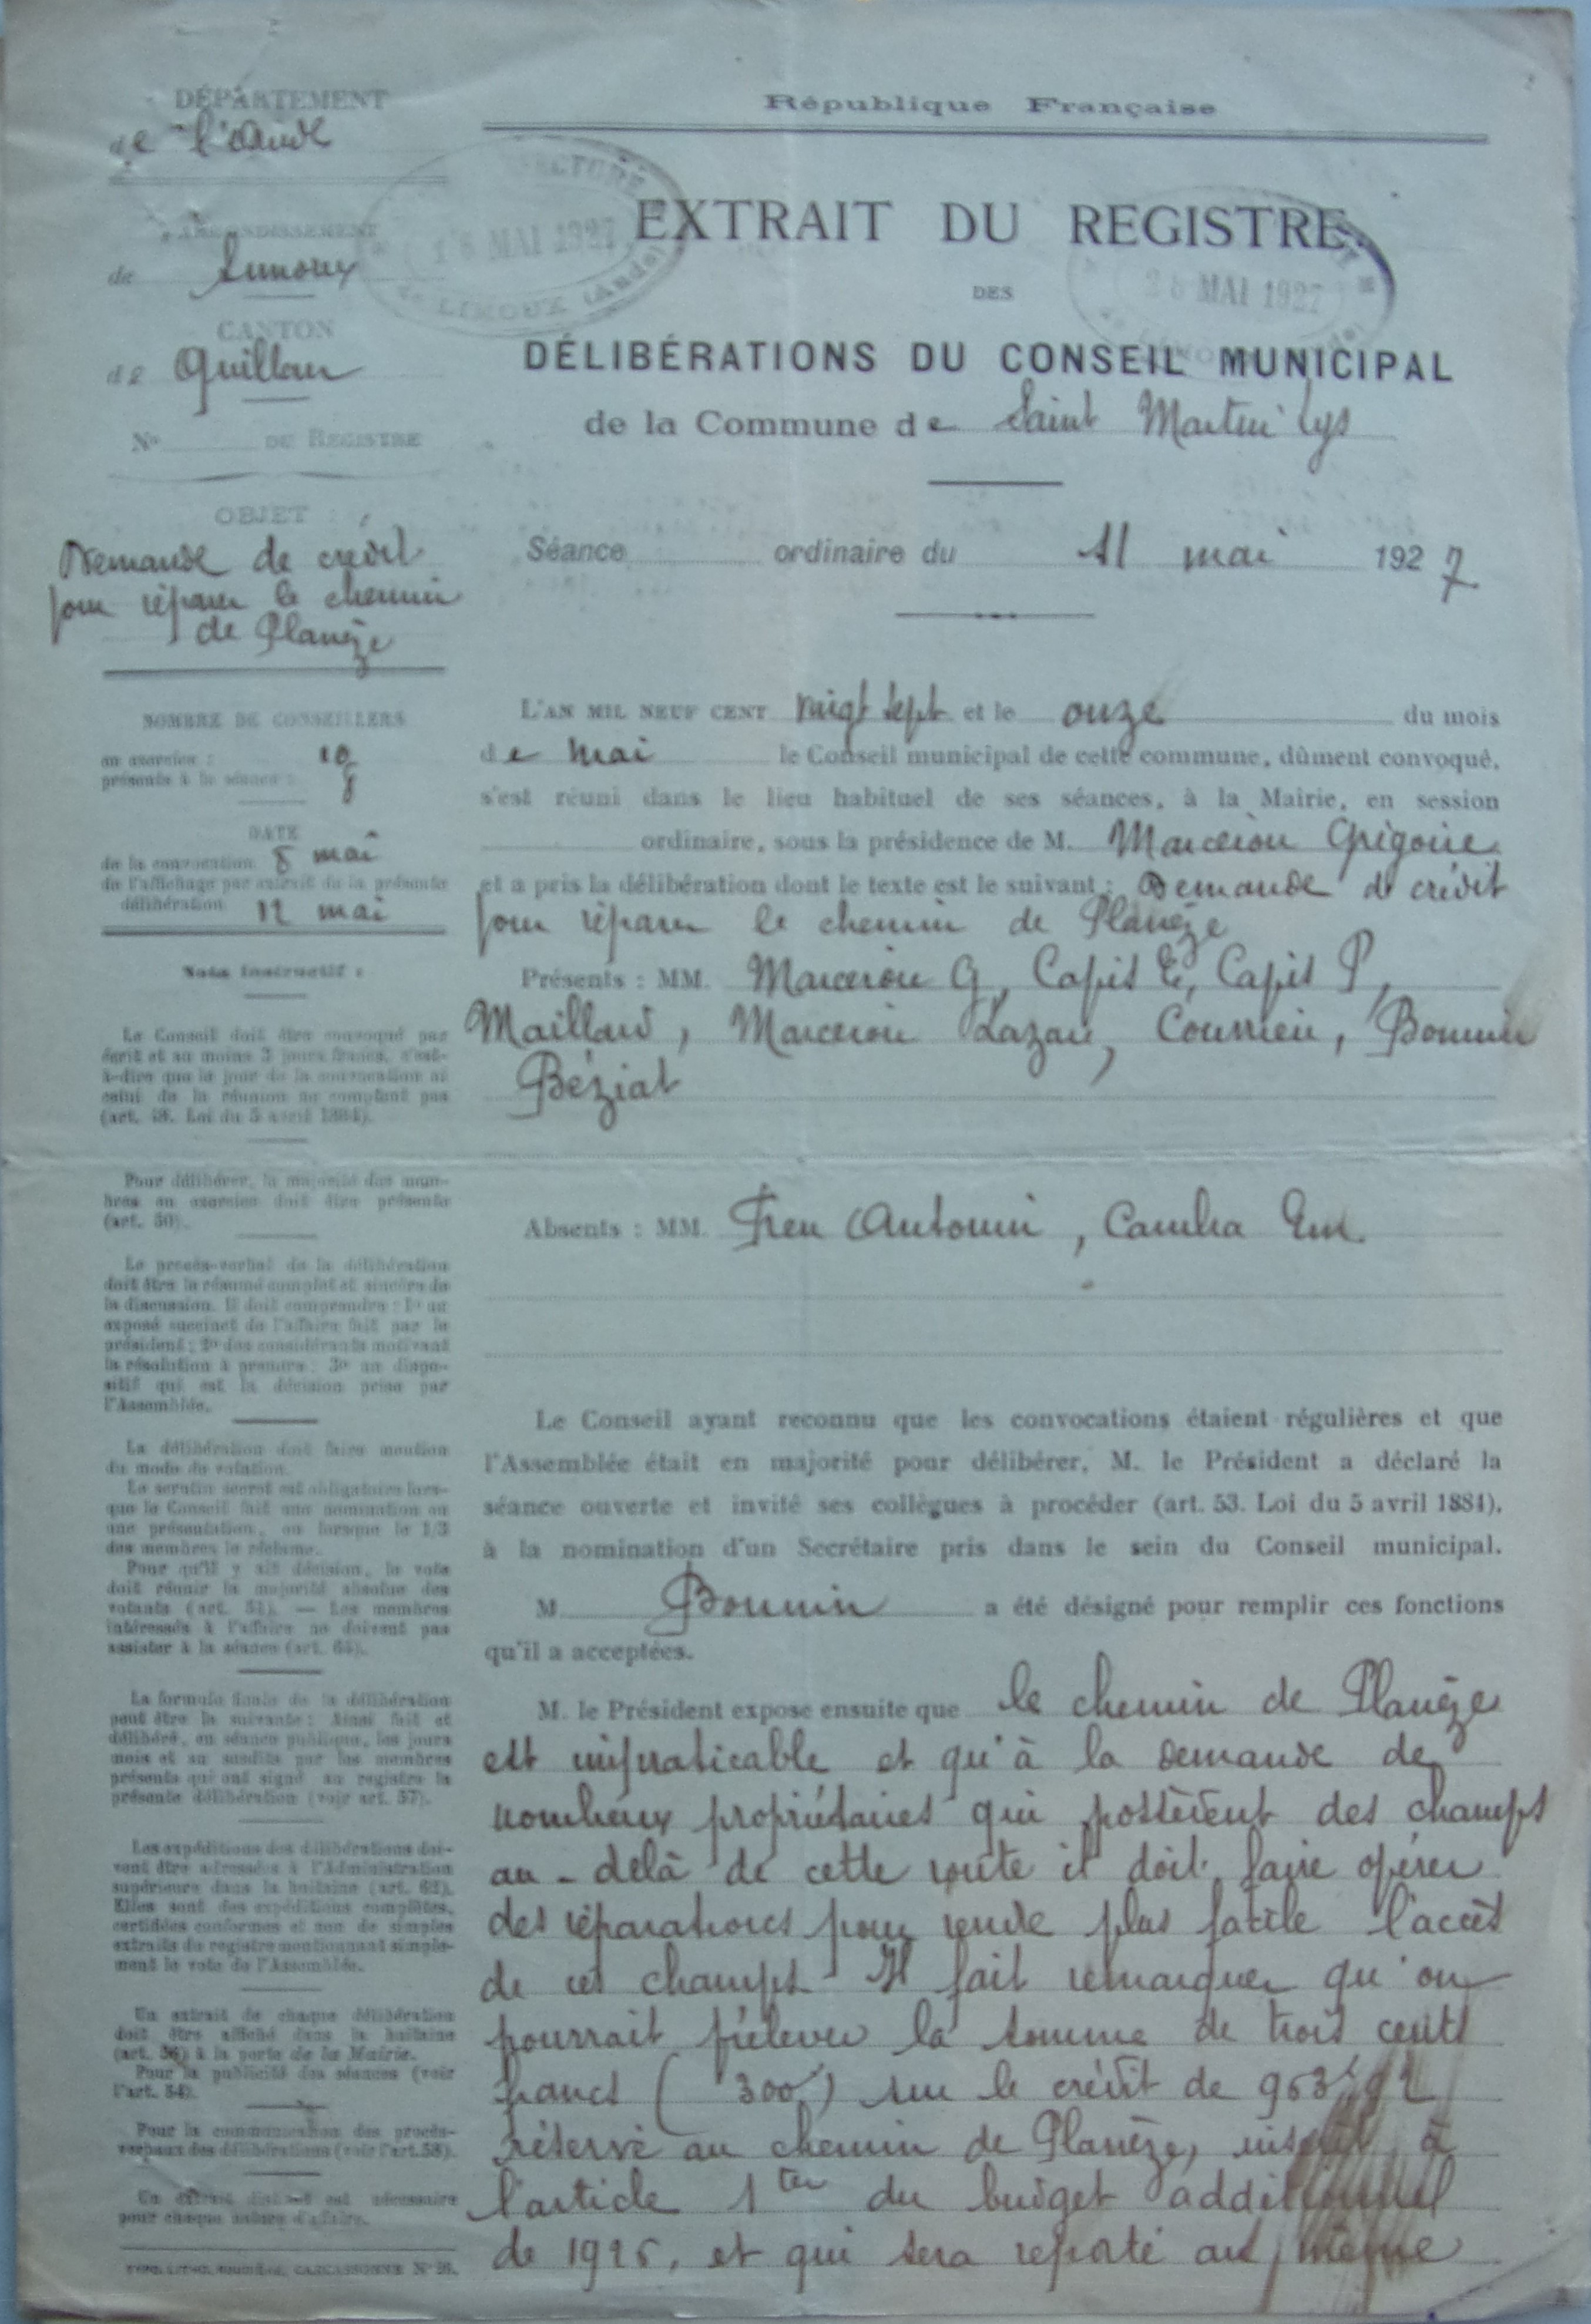 DÉPARTEMENT
de l'Aude
ARRONDISSEMENT
de Limoux
CANTON
de Quillan
No DU REGISTRE
OBJET :
Demande de crédit
pour réparer le chemin
de Planèze
NOMBRE DE CONSEILLERS
en exercice : 10
présents à la séance : 8
DATE
de la convocation 8 mai
de l'affichage par extrait de la présente
délibération 12 mai
Note Instructif :
Le Conseil doit être convoqué par
écrit et au moins 3 jours francs, c'est-
à-dire que le jour de la convocation ni
celui de la réunion ne comptent pas
(art. 48. Loi du 5 avril 1884).
Pour délibérer, la majorité des mem-
bres en exercice doit être présente
(art. 50).
Le procès-verbal de la délibération
doit être le résumé complet et sincère de
la discussion. Il doit comprendre : 1o un
exposé succinct de l'affaire fait par le
président ; 2o des considérants motivant
la résolution à prendre ; 3o un dispo-
sitif qui est la décision prise par
l'Assemblée.
La délibération doit faire mention
du mode de votation.
Le scrutin secret est obligatoire lors-
que le Conseil fait une nomination ou
une présentation, ou lorsque le 1/3
des membres le réclame.
Pour qu'il y ait décision, le vote
doit réunir la majorité absolue des
votants (art. 51). — Les membres
intéressés à l'affaire ne doivent pas
assister à la séance (art. 64).
La formule finale de la délibération
peut être la suivante : Ainsi fait et
délibéré, en séance publique, les jours
mois et an susdits par les membres
présents qui ont signé au registre la
présente délibération (voir art. 57).
Les expéditions des délibérations doi-
vent être adressées à l'Administration
supérieure dans la huitaine (art. 62).
Elles sont des expéditions complètes,
certifiées conformes et non de simples
extraits du registre mentionnant simple-
ment le vote de l'Assemblée.
Un extrait de chaque délibération
doit être affiché dans la huitaine
(art. 56) à la porte de la Mairie.
Pour la publicité des séances (voir
l'art. 54).
Pour la communication des procès-
verbaux des délibérations (voir l'art. 58).
Un extrait distinct est nécessaire
pour chaque nature d'affaire.
CARCASSONNE No 26.
République Française
18 MAI 1927
de LIMOUX (Aude)
28 MAI 1927
EXTRAIT DU REGISTRE
DES
DÉLIBÉRATIONS DU CONSEIL MUNICIPAL
de la Commune de Saint Martin Lys
Séance ordinaire du 11 mai 1927
L'AN MIL NEUF CENT vingt sept et le onze du mois
de mai le Conseil municipal de cette commune, dûment convoqué,
s'est réuni dans le lieu habituel de ses séances, à la Mairie, en session
ordinaire, sous la présidence de M. Marcerou Grégoire
et a pris la délibération dont le texte est le suivant : Demande de crédit
pour réparer le chemin de Planèze
Présents : MM. Marcerou G, Capis E, Capis P,
Maillard, Marcerou Lazare, Courrieu, Bonnin
Béziat
Absents : MM. Freu Antonin, Cambra Em.
Le Conseil ayant reconnu que les convocations étaient régulières et que
l'Assemblée était en majorité pour délibérer, M. le Président a déclaré la
séance ouverte et invité ses collègues à procéder (art. 53. Loi du 5 avril 1884),
à la nomination d'un Secrétaire pris dans le sein du Conseil municipal.
M Bonnin a été désigné pour remplir ces fonctions
qu'il a acceptées.
M. le Président expose ensuite que le chemin de Planèze
est impraticable et qu'à la demande de
nombreux propriétaires qui possèdent des champs
au-delà de cette route il doit faire opérer
des réparations pour rendre plus facile l'accès
de ces champs Il fait remarquer qu'on
pourrait prélever la somme de trois cents
francs ( 300f ) sur le crédit de 953f,92
réservé au chemin de Planèze, inscrit à
l'article 1ter du budget additionnel
de 1926, et qui sera reporté au même